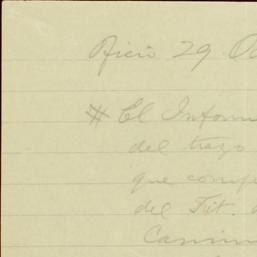 29 Oc
# El Inform
del trazo
que comp
del Fit.
Camin